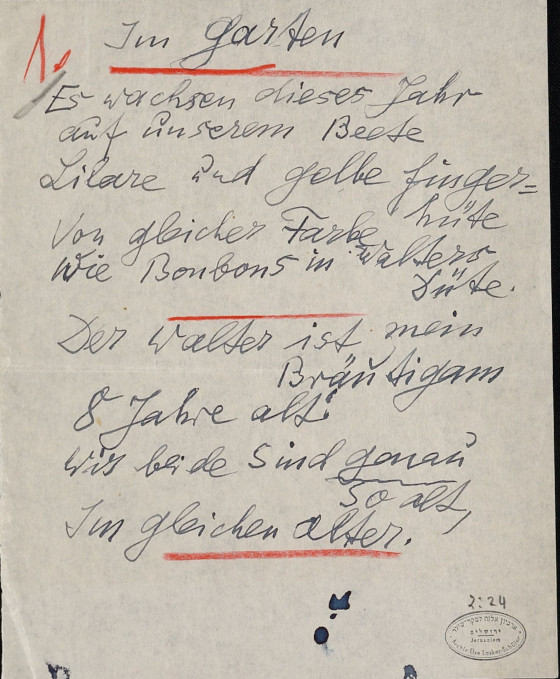 1.
Im Garten
Es wachsen dieses Jahr
auf unserem Beete
Lilane und gelbe Finger=
hüte
Von gleicher Farbe
Wie Bonbons in Walters
Düte.
Der Walter ist mein
Bräutigam
8 Jahre alt:
Wir beide sind genau
so alt,
Im gleichen Alter.
2:24
ירושלים
Jerusalem
Archiv Else Lasker-Schüler